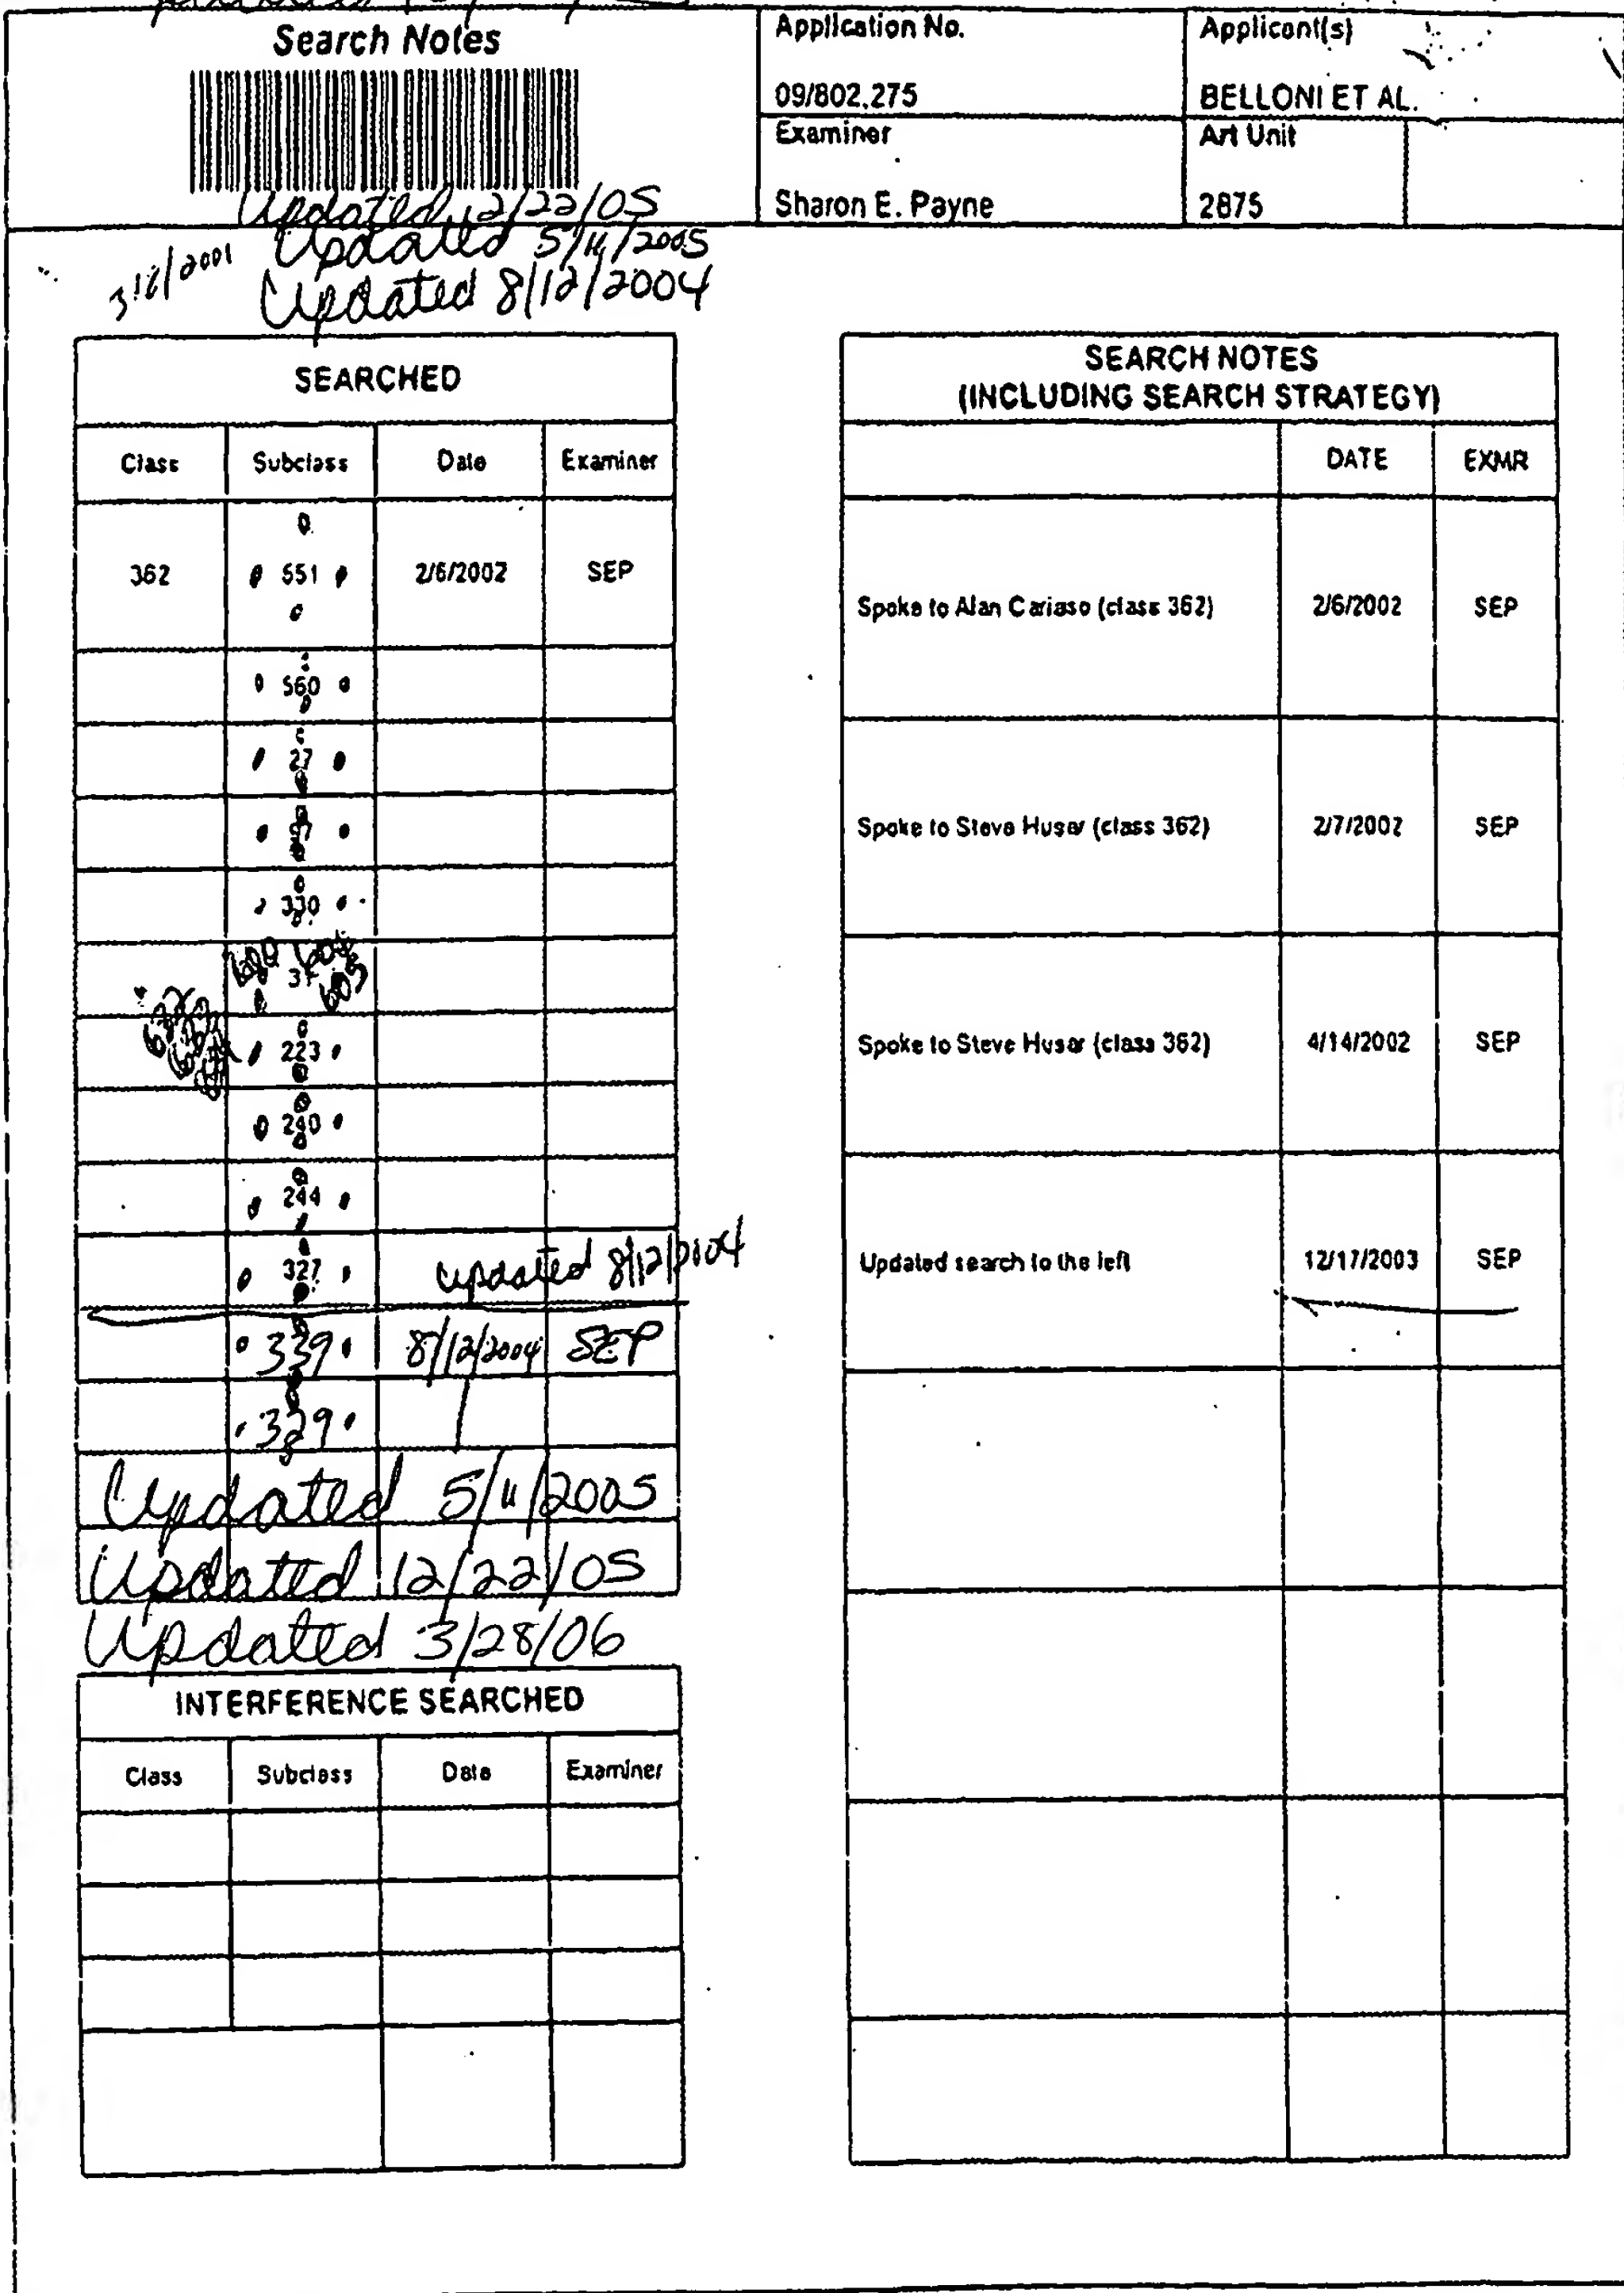 Search Notes
Application No.
Applicant(s)
09/802,275
BELLONI ET AL.
Examiner
Art Unit
Sharon E. Payne
2875
Updated 12/22/05
Updated 5/11/2005
Updated 8/12/2004
SEARCHED
Class Subclass Date Examiner
362 551 2/6/2002 SEP
560
27
97
330
31
223
240
244
327 Updated 8/12/2004
339 8/12/2004 SEP
329
Updated 5/11/2005
Updated 12/22/05
Updated 3/28/06
INTERFERENCE SEARCHED
Class Subclass Date Examiner
SEARCH NOTES
(INCLUDING SEARCH STRATEGY)
DATE EXMR
Spoke to Alan Cariaso (class 362) 2/6/2002 SEP
Spoke to Steve Husar (class 362) 2/7/2002 SEP
Spoke to Steve Husar (class 362) 4/14/2002 SEP
Updated search to the left 12/17/2003 SEP